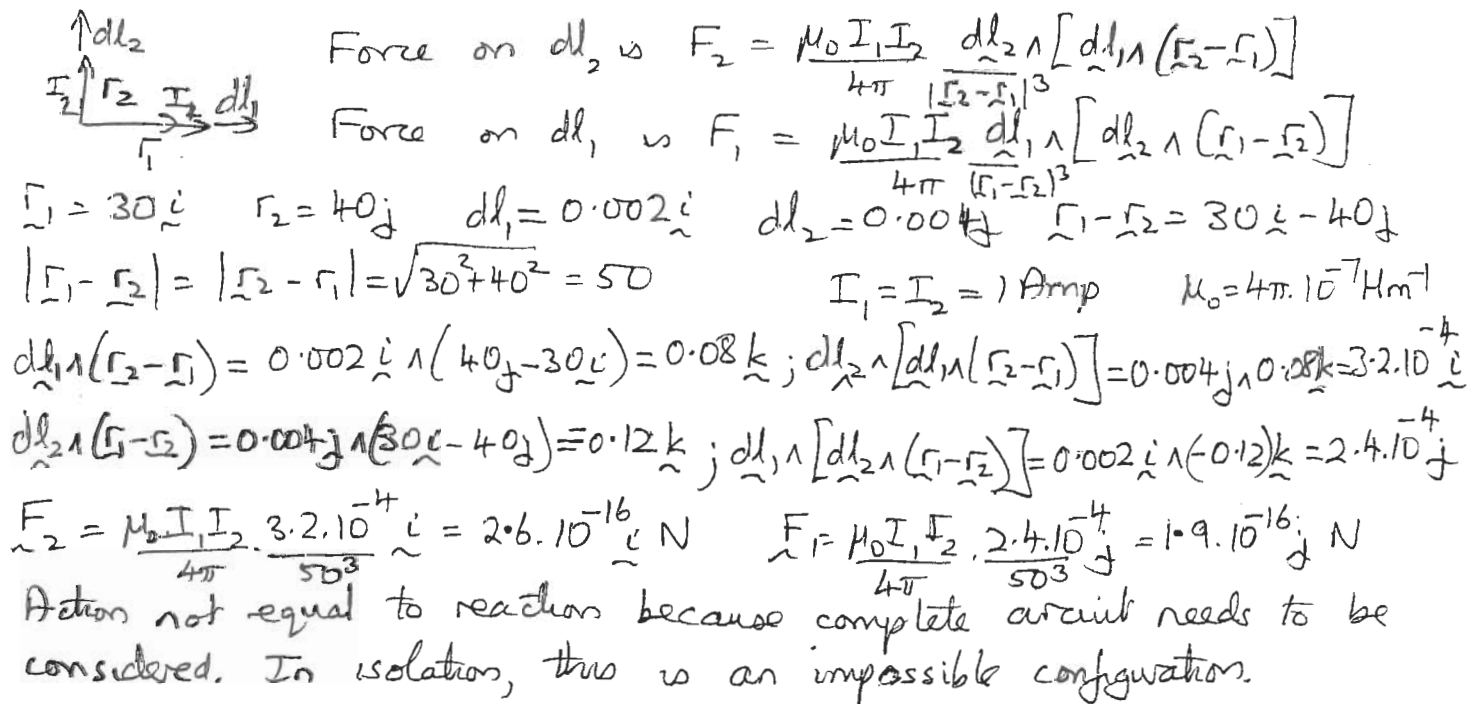 dl₂ Force on dl₂ is F₂ = μ₀I₁I₂/4π dl₂∧[dl₁∧(r₂-r₁)]/|r₂-r₁|³
I₂ r₂ I₂ dl₁ r₁ Force on dl₁ is F₁ = μ₀I₁I₂/4π dl₁∧[dl₂∧(r₁-r₂)]/(r₁-r₂)³
r₁ = 30i r₂ = 40j dl₁ = 0.002i dl₂ = 0.004j r₁-r₂ = 30i-40j
|r₁-r₂| = |r₂-r₁| = √30²+40² = 50 I₁ = I₂ = 1 Amp μ₀ = 4π.10⁻⁷Hm⁻¹
dl₁∧(r₂-r₁) = 0.002i∧(40j-30i) = 0.08k; dl₂∧[dl₁∧(r₂-r₁)] = 0.004j∧0.08k = 3.2.10⁻⁴i
dl₂∧(r₁-r₂) = 0.004j∧(30i-40j) = 0.12k; dl₁∧[dl₂∧(r₁-r₂)] = 0.002i∧(-0.12)k = 2.4.10⁻⁴j
F₂ = μ₀I₁I₂/4π . 3.2.10⁻⁴/50³ i = 2.6.10⁻¹⁶i N F₁ = μ₀I₁I₂/4π . 2.4.10⁻⁴/50³ j = 1.9.10⁻¹⁶j N
Action not equal to reaction because complete circuit needs to be
considered. In isolation, this is an impossible configuration.